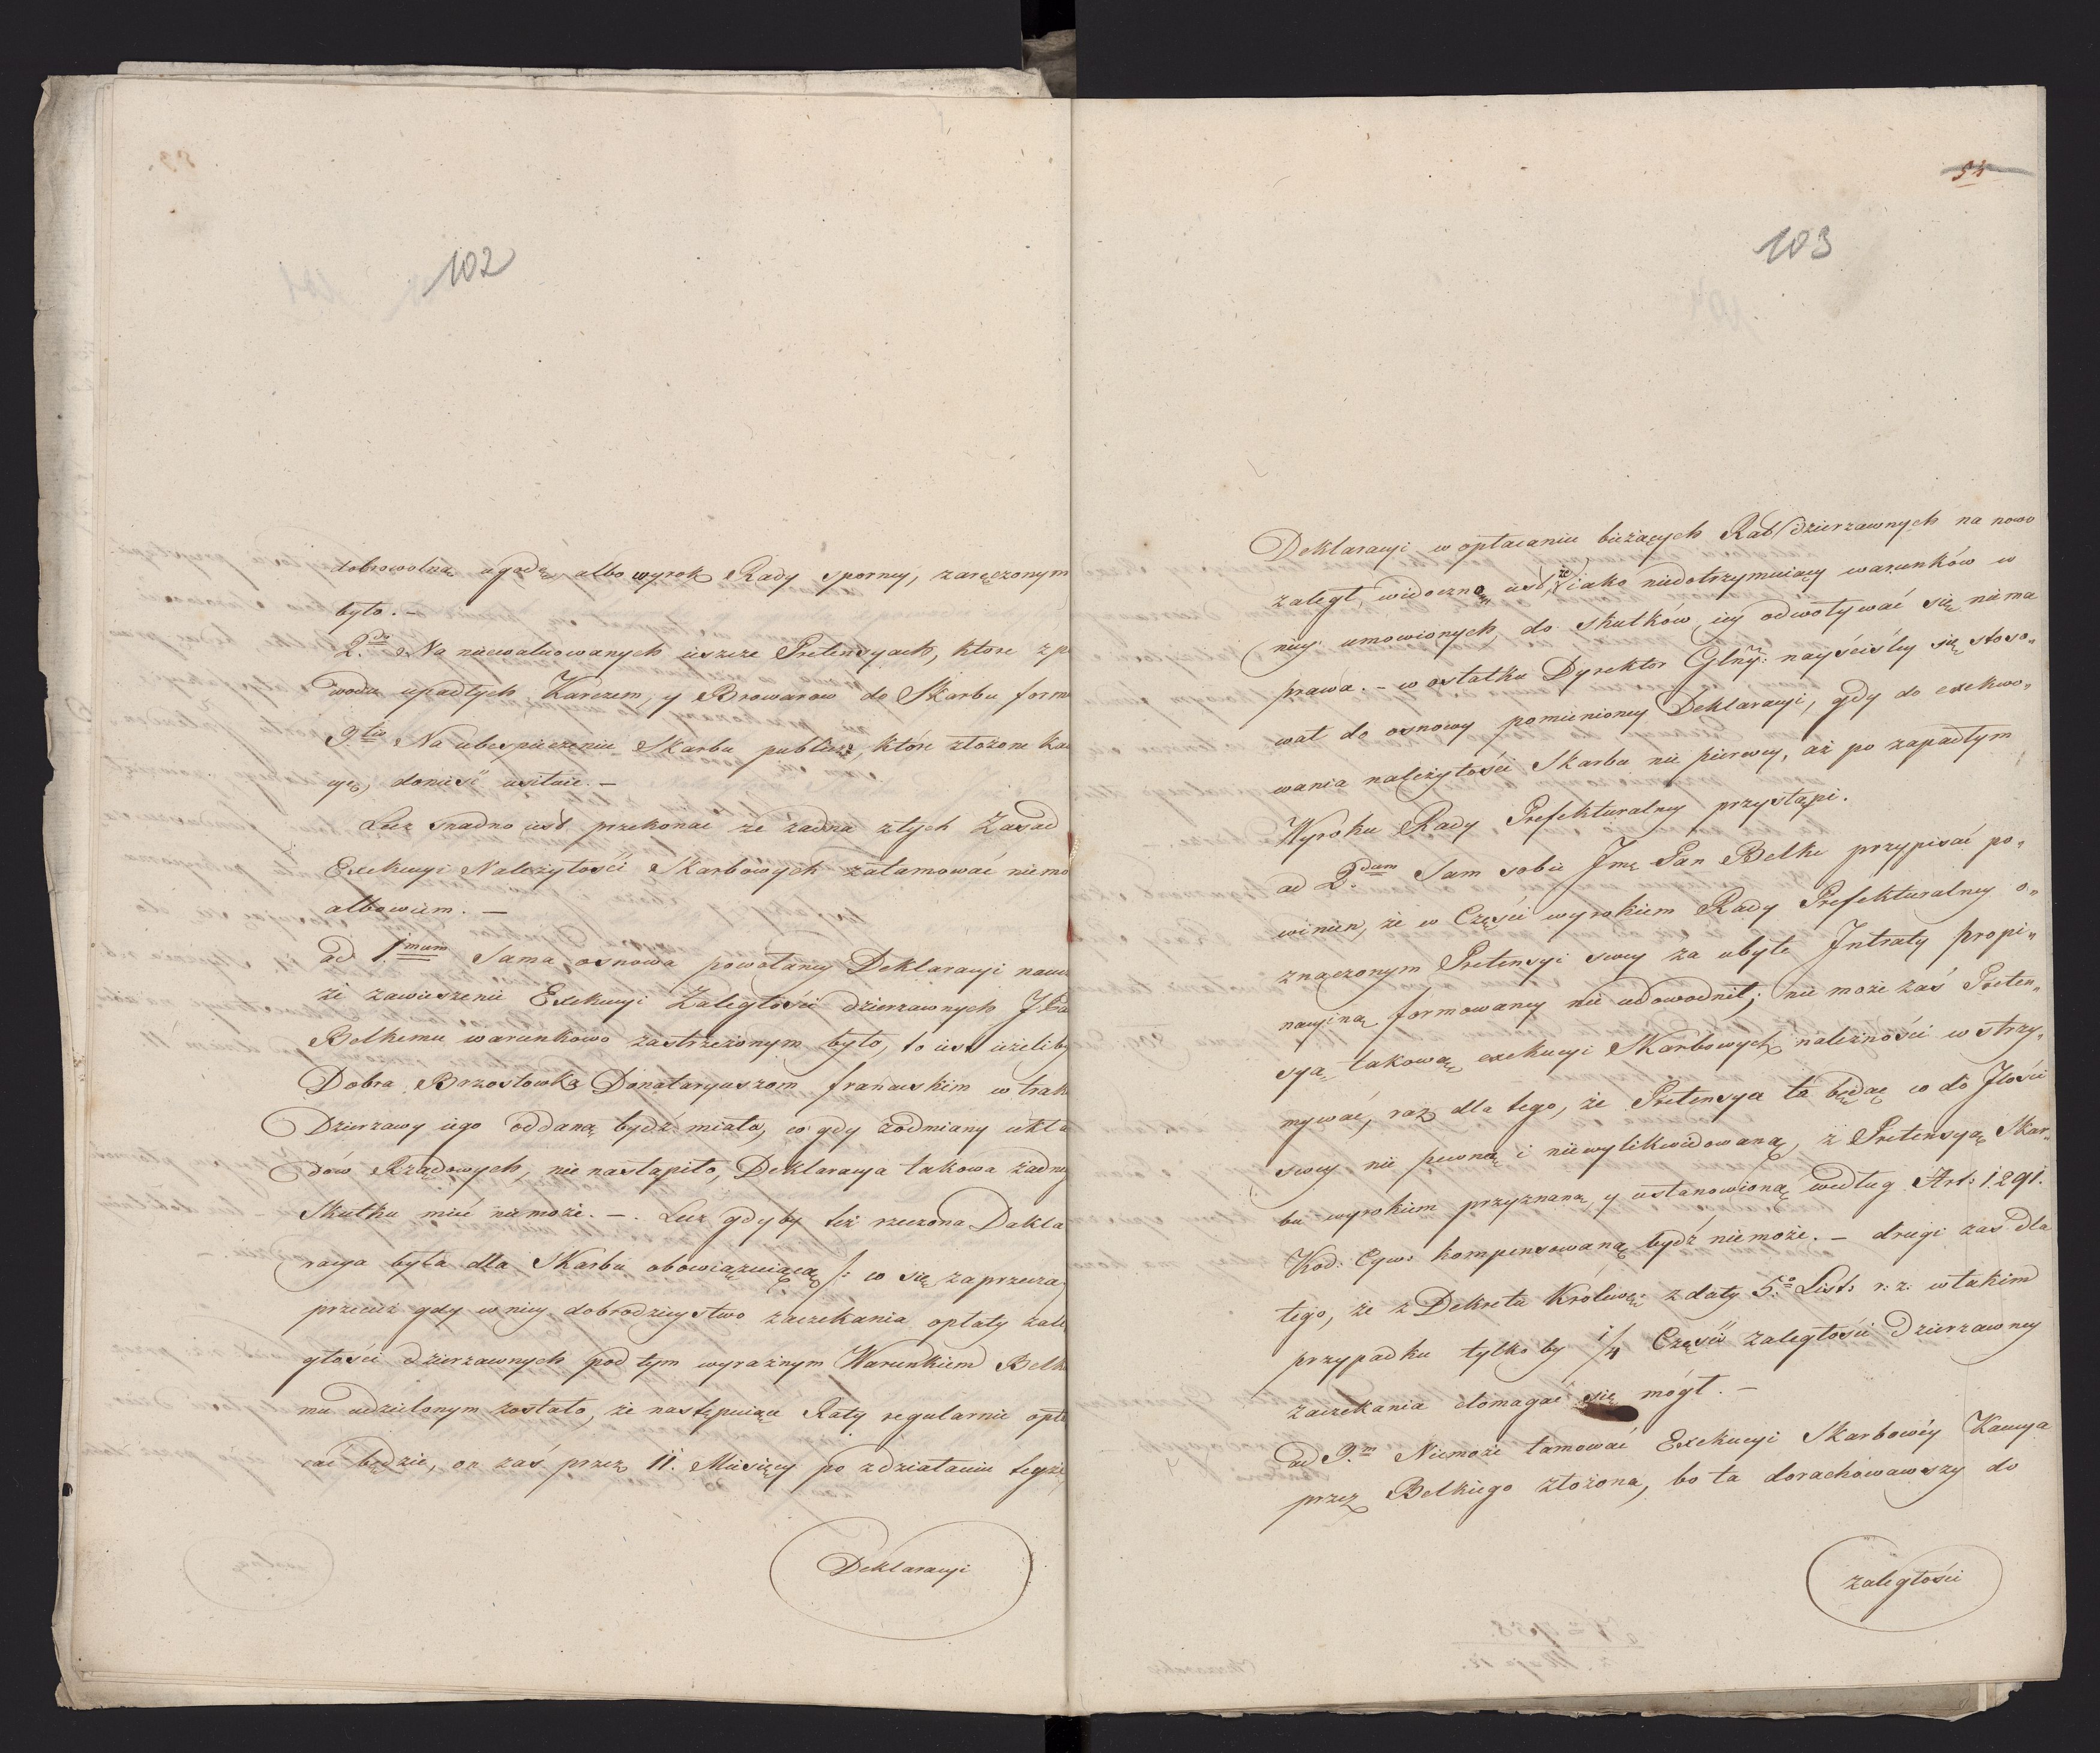 102
dobrowolną ugodę, albo wyrok Rady sporney, zaręczonym
było. –
2.do Na niewaluowanych ieszcze Pretensyach, ktore z p
wodu upadłych Karczem, y Browarow do Skarbu form
3.tio Na ubespieczeniu Skarbu publicz:, które złożone Kau
cyę, donieść usiłuie. –
Lecz snadno iest przekonac że żadna z tych Zasad
Exekucyi Należytości Skarbowych zatamować niemo
albowiem. –
ad 1.mum Sama osnowa powołaney Deklaracyi naucz
że zawieszenie Exekucyi Zaległości dzierzawnych J. Pa
Belkemu warunkowo zastrzeżonym było, to iest ieżeliby
Dobra Brzostowka Donataryuszom francuskim w trak
Dzierzawy iego oddaną bydź miała, co gdy z odmiany ukła
dów Rządowych, nie nastąpiło, Deklaracya takowa żadne
Skutku mieć niemoże. – . Lecz gdyby też rzeczona Dekla
racya była dla Skarbu obowiązuiącą /: co się zaprzecza
przecież gdy w niey dobrodzieystwo zaczekania opłaty zale
głości dzierzawnych pod tym wyraźnym Warunkiem Belk
mu udzielonym zostało, że następuiące Raty regularnie opła
cać będzie, on zaś przez 11. Miesięcy po zdziałaniu teyże
Deklaracyi
54
103
Deklaracyi w opłacaniu bieżących Rat dzierzawnych na nowo
zaległ, widoczno iest, że iako niedotrzymuiący warunków w
niey umowionych, do skutków iey odwoływać się niema
prawa. – w ostatku Dyrektor Glny: nayściśley się stoso„
wał do osnowy pomienioney Deklaracyi, gdy do exekwo„
wania należytości Skarbu nie pierwey, aż po zapadłym
Wyroku Rady Prefekturalney przystąpi.
ad 2.dum Sam sobie Jmć Pan Belke przypisać po„
winien, że w Części wyrokiem Rady Prefekturalney o„
znaczonym Pretensyi swey za ubyłe Intraty propi„
nacyiną formowaney nie udowodnił; nie może zaś Preten„
sya takową exekucyi Skarbowych należności wstrzy„
mywać, raz dla tego, że Pretensya ta będąc co do Ilości
swey nie pewną i niewylikwidowaną, z Pretensyą Skar„
bu wyrokiem przyznaną y ustanowioną według Art: 1291.
Kod: Cyw: kompensowaną bydź niemoże. – drugi zaś dla
tego, że z Dekretu Królews: z daty 5.o List: r: z: w takim
przypadku tylko by 1/4 Część zaległości Dzierzawney
zaczekania domagać się mógł. –
ad 3.m Niemoże tamować Exekucyi Skarbowéy Kaucya
przez Belkiego złożona, bo ta dorachowawszy do
zaległości